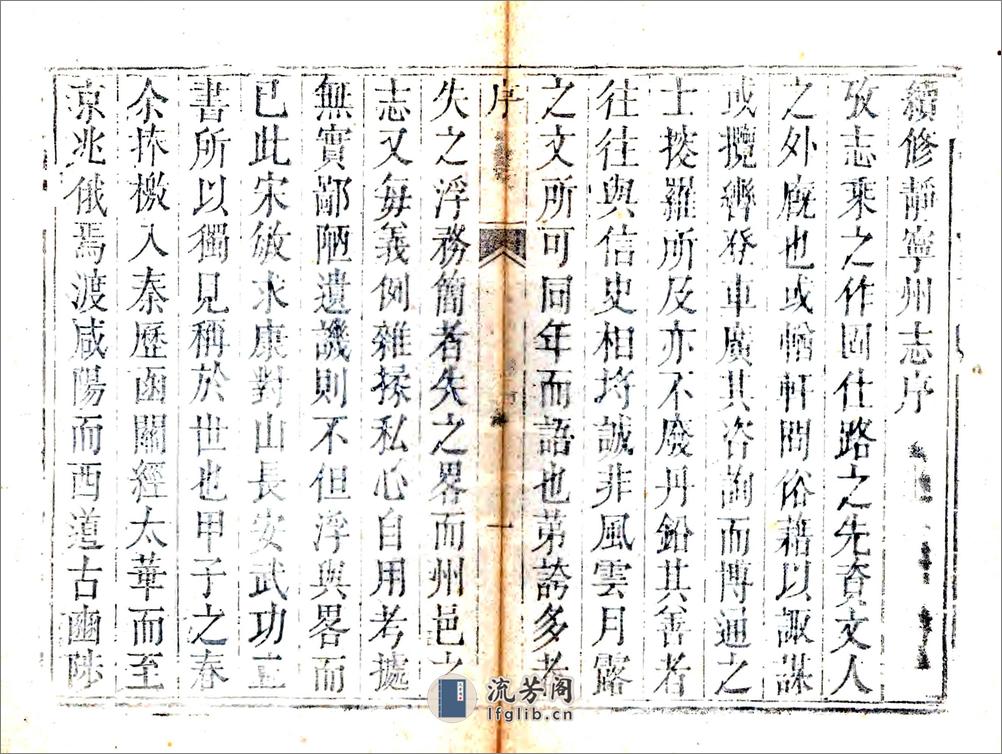 續修靜寧州志序
攷志乘之作固仕路之先資文人
之外廐也或輶軒問俗藉以諏諆
或攬轡登車廣其咨詢而博通之
士掞羅所及亦不廢丹鉛其善者
往往與信史相埒誠非風雲月露
之文所可同年而語也第誇多者
序
一
失之浮務簡者失之畧而州邑之
志又毎義例雜揉私心自用考據
無實鄙陋遺譏則不但浮與畧而
已此宋敏求康對山長安武功二
書所以獨見稱於世也甲子之春
余捧檄入秦歷函關經太華而至
京兆俄焉渡咸陽而西道古豳陟
流芳阁
lfglib.cn